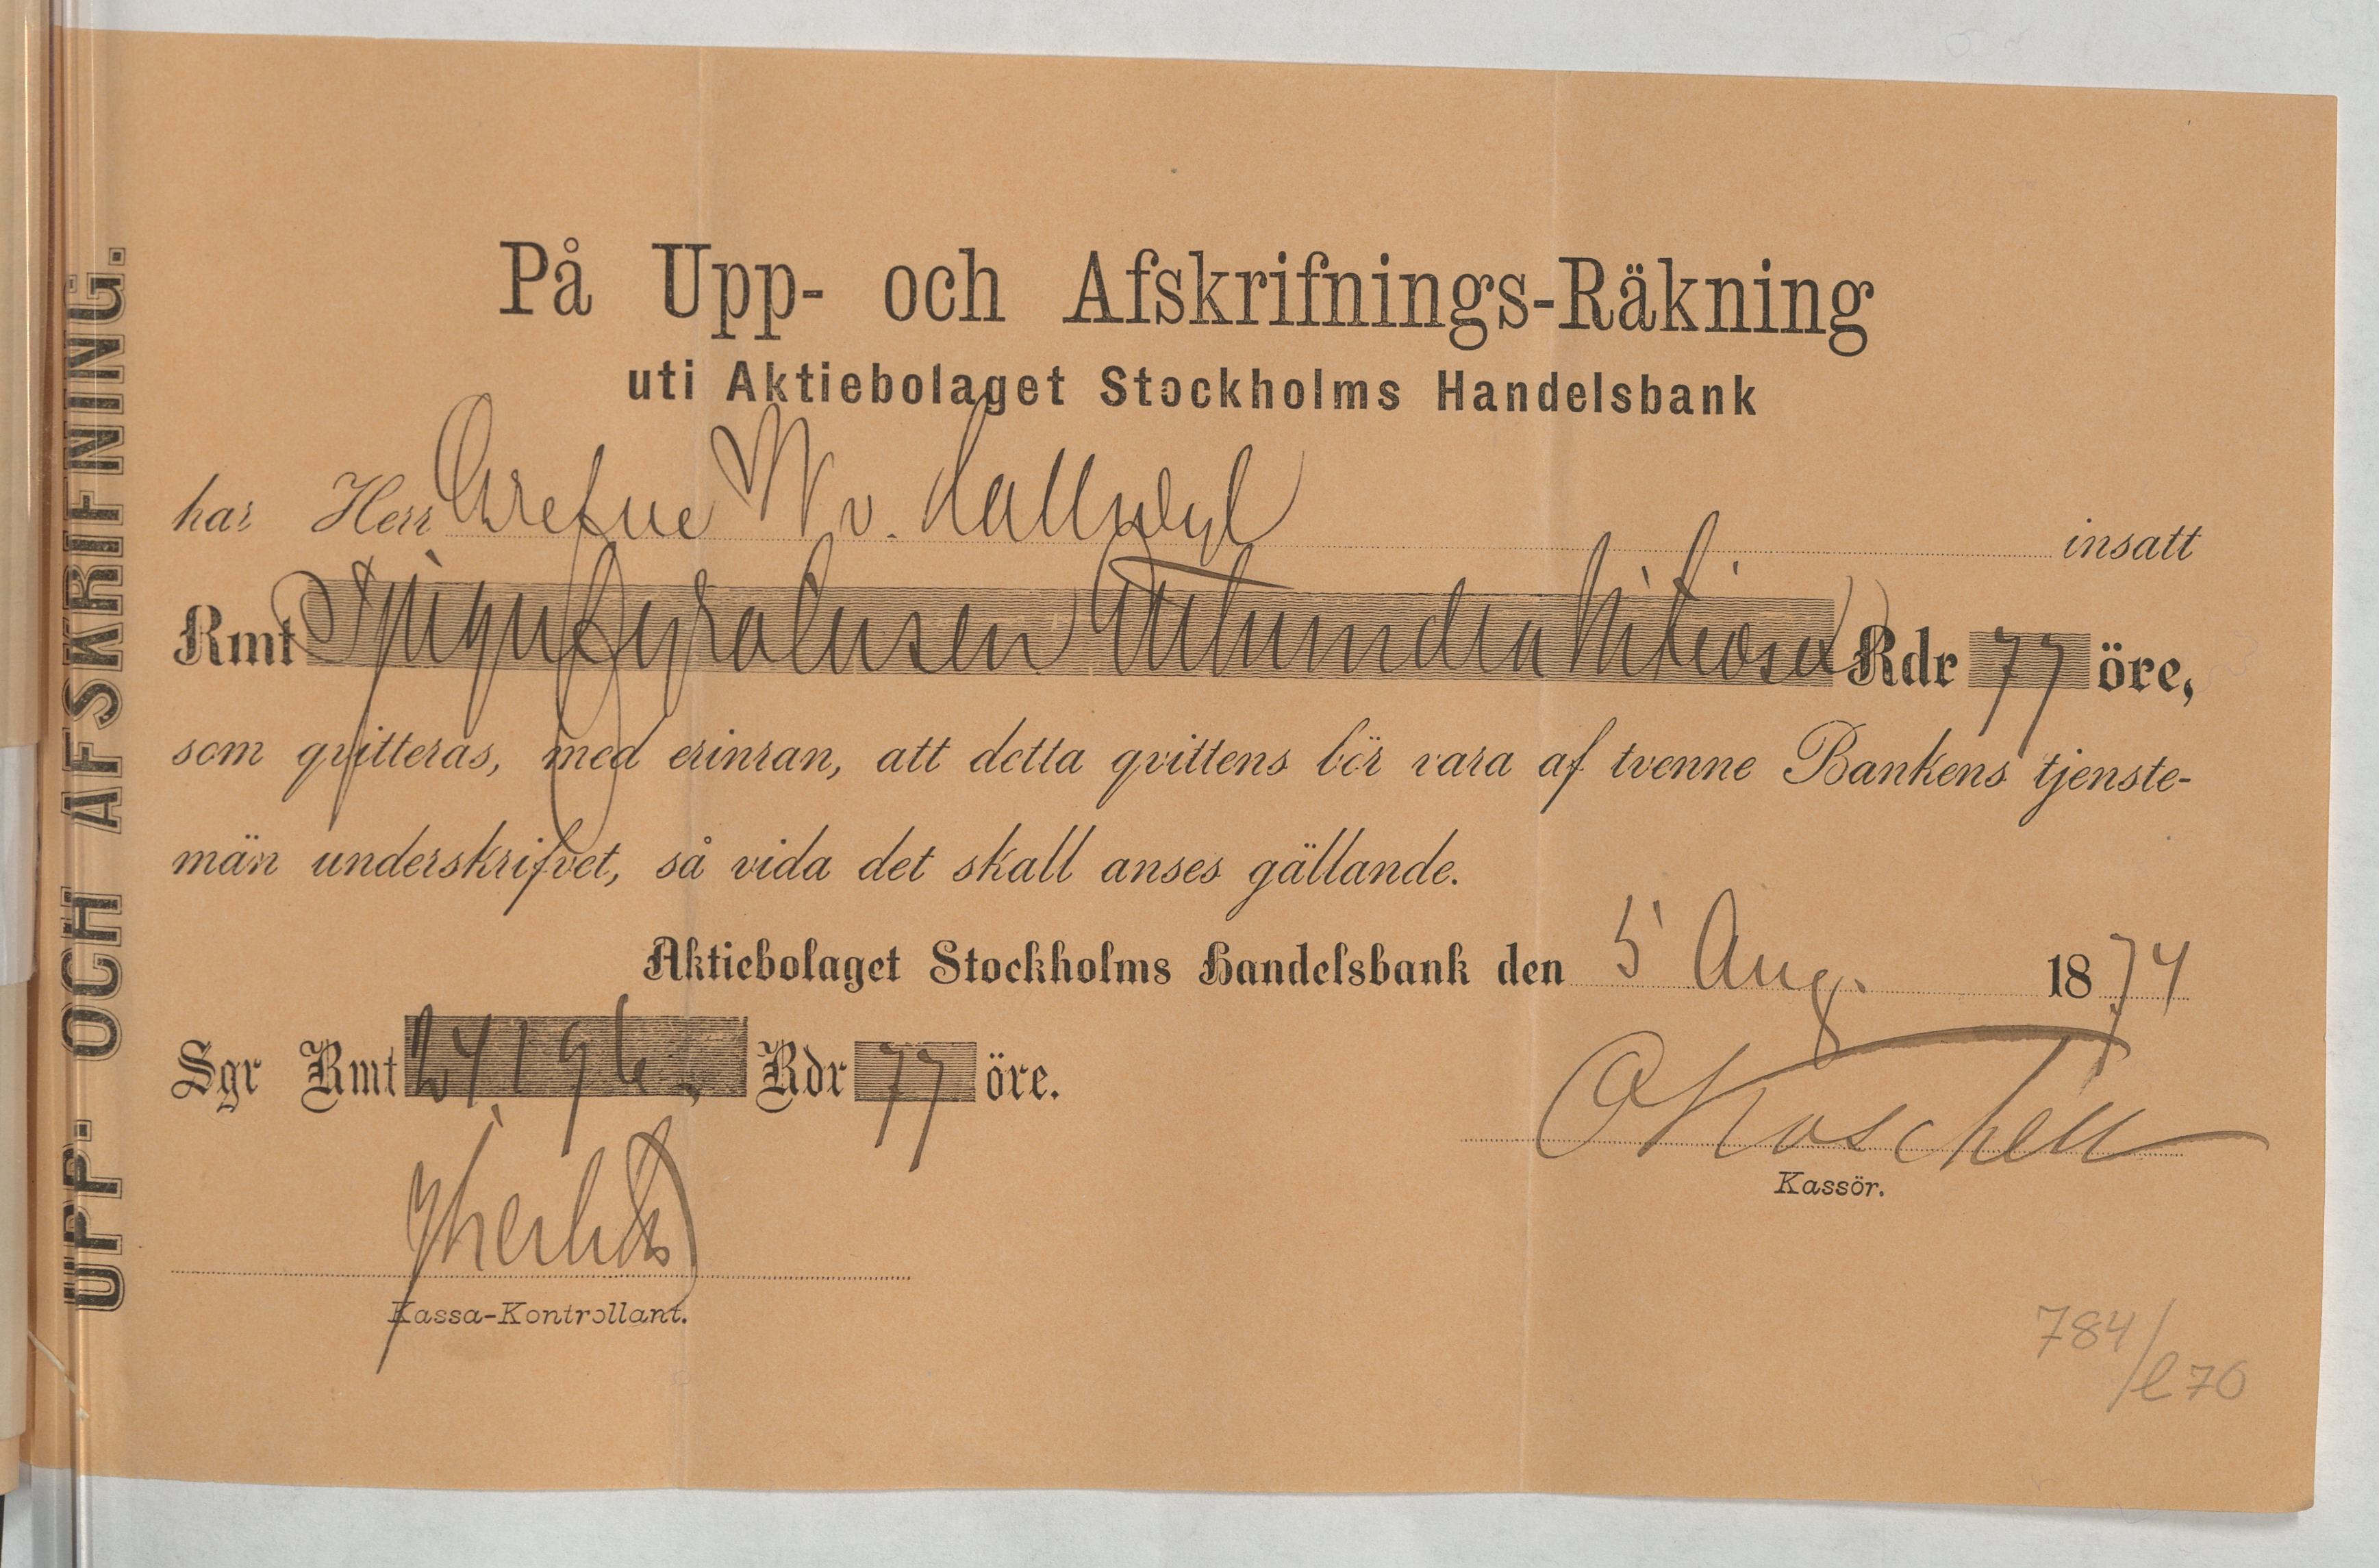 UPP- OCH AFSKRIFNING.
På Upp- och Afskrifnings-Räkning
uti Aktiebolaget Stockholms Handelsbank
har Herr Grefve W v. Hallwyl insatt
Rmt Tjugufyratusen Ethundra Nitiosex Rdr 77 öre,
som qvitteras, med erinran, att detta qvittens bör vara af tvenne Bankens tjenste-
män underskrifvet, så vida det skall anses gällande.
Aktiebolaget Stockholms Handelsbank den 5 Aug. 1874
Sgr Rmt 24,196, Rdr 77 öre.
Kassör.
Kassa-Kontrollant.
784/
l 70